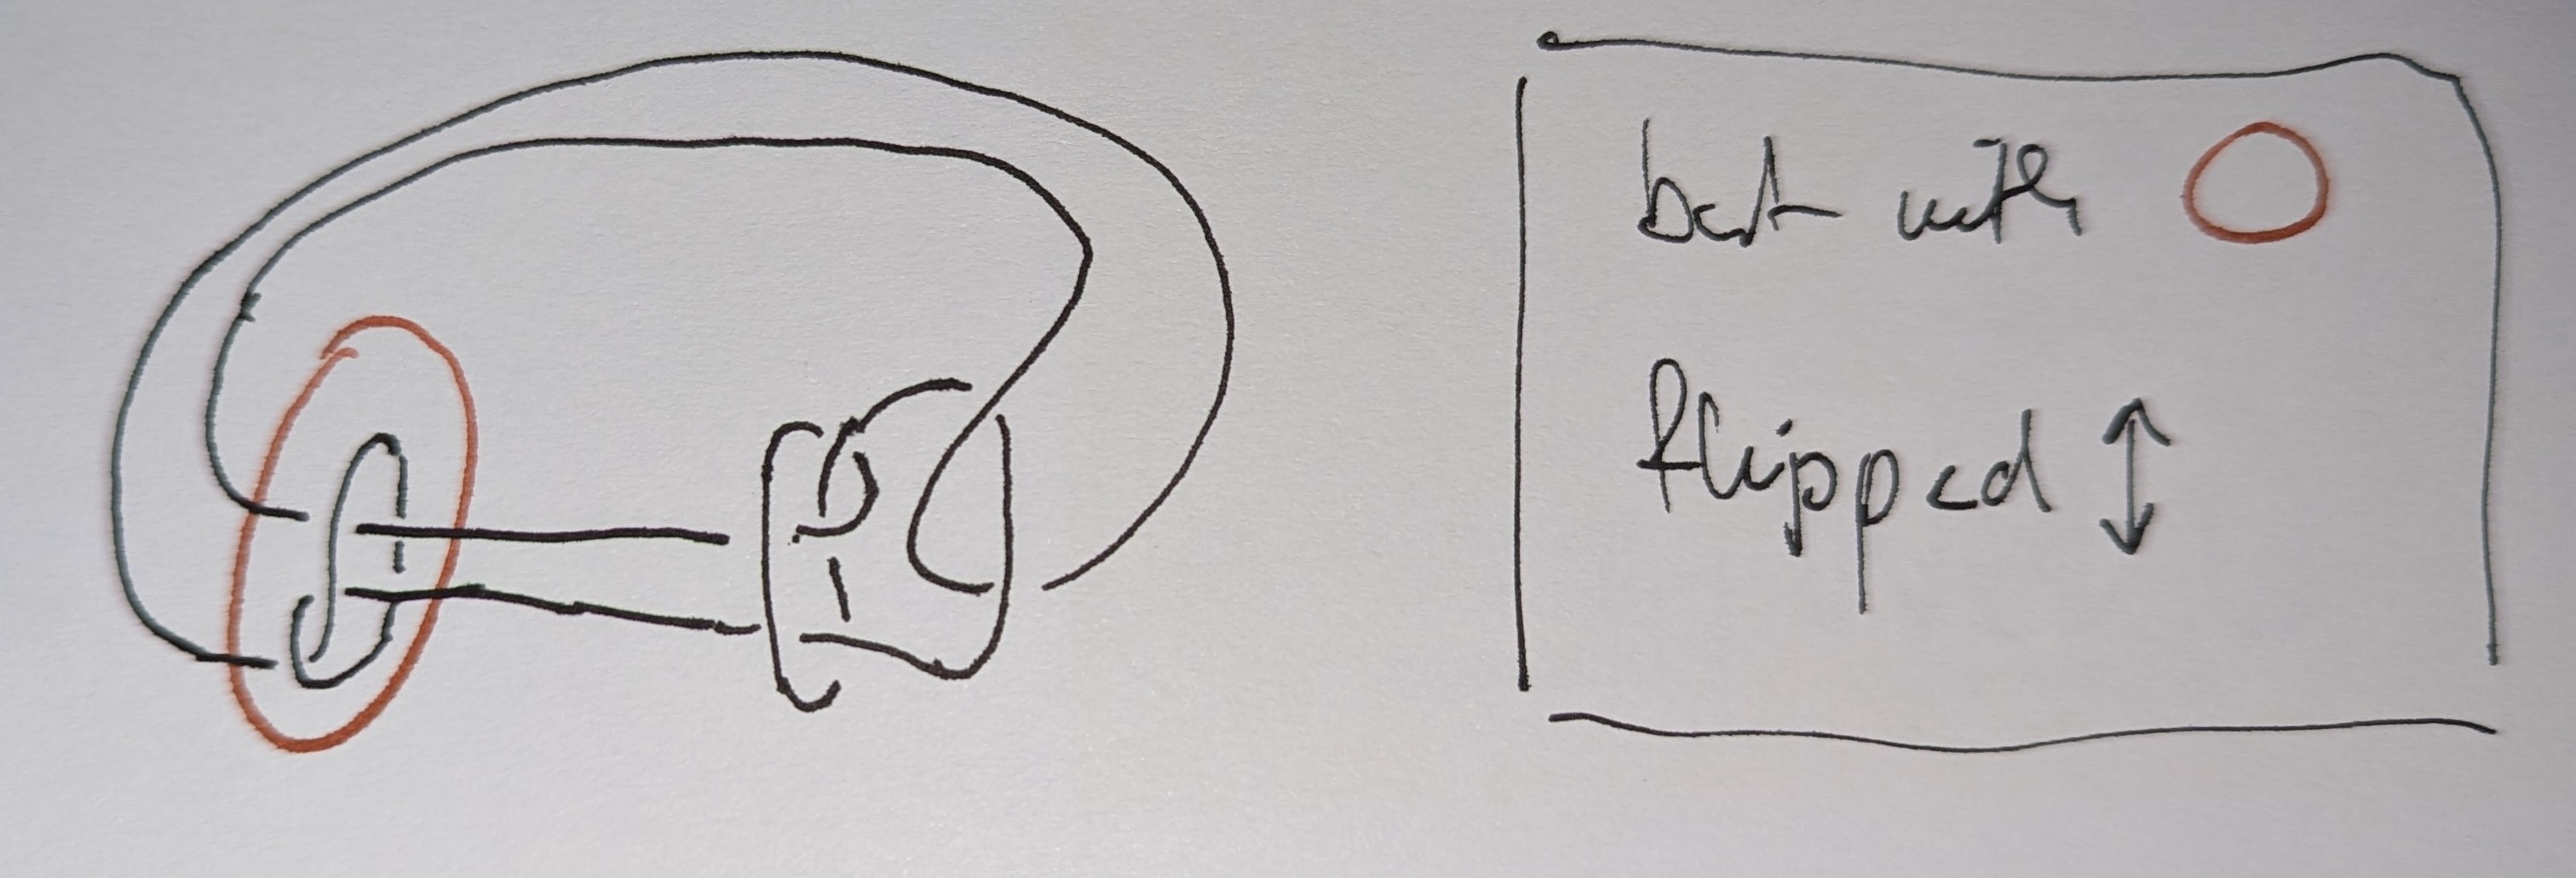 but with
flipped ↕